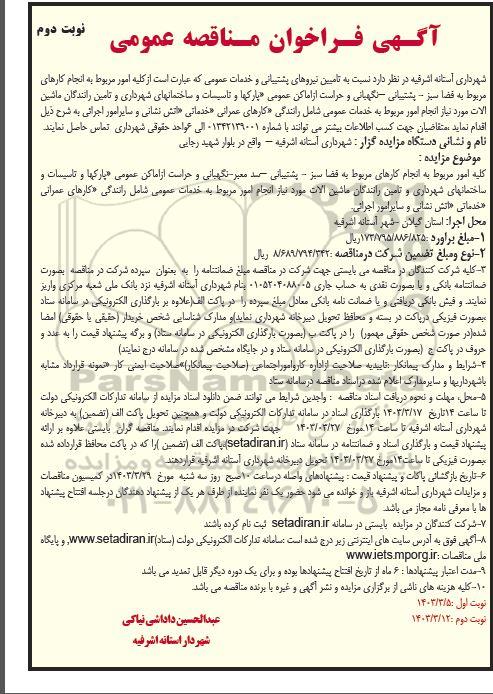 نوبت دوم
آگـهی فـراخوان مـناقصه عمومی
شهرداری آستانه اشرفیه در نظر دارد نسبت به تامیین نیروهای پشتیبانی و خدمات عمومی که عبارت است از کلیه امور مربوط به انجام کارهای
مربوط به فضا سبز - پشتیبانی –نگهبانی و حراست ازاماکن عمومی «پارکها و تاسیسات و ساختمانهای شهرداری و تامین رانندگان ماشین
آلات مورد نیاز انجام امور مربوط به خدمات عمومی شامل رانندگی «کارهای عمرانی «خدماتی «آتش نشانی و سایرامور اجرائی به شرح ذیل
اقدام نماید .متقاضیان جهت کسب اطلاعات بیشتر می توانند با شماره ۰۱۳۴۲۱۳۹۰۰۱ الی ۶واحد حقوقی شهرداری تماس حاصل نمایند.
نام و نشانی دستگاه مزایده گزار : شهرداری آستانه اشرفیه – واقع در بلوار شهید رجایی
موضوع مزایده :
کلیه امور مربوط به انجام کارهای مربوط به فضا سبز - پشتیبانی –سد معبر-نگهبانی و حراست ازاماکن عمومی «پارکها و تاسیسات و
ساختمانهای شهرداری و تامین رانندگان ماشین آلات مورد نیاز انجام امور مربوط به خدمات عمومی شامل رانندگی «کارهای عمرانی
«خدماتی «آتش نشانی و سایرامور اجرائی.
محل اجرا: استان گیلان –شهر آستانه اشرفیه
۱-مبلغ براورد :۱۷۳/۷۹۵/۸۸۶/۸۲۵ریال
۲-نوع ومبلغ تضمین شرکت درمناقصه :۸/۶۸۹/۷۹۴/۳۴۲ ریال
۳-کلیه شرکت کنندگان در مناقصه می بایستی جهت شرکت در مناقصه مبلغ ضمانتنامه را به عنوان سپرده شرکت در مناقصه بصورت
ضمانتنامه بانکی و یا بصورت نقدی به حساب جاری ۰۱۰۵۲۰۴۰۸۸۰۰۵ بنام شهرداری آستانه اشرفیه نزد بانک ملی شعبه مرکزی واریز
نمایند. و فیش بانکی دریافتی و یا ضمانت نامه بانکی معادل مبلغ سپرده را در پاکت الف(علاوه بر بارگذاری الکترونیکی در سامانه ستاد
،بصورت فیزیکی درپاکت در بسته و محافظ تحویل دبیرخانه شهرداری نماید)و مدارک شناسایی شخص خریدار (حقیقی یا حقوقی) امضا
شده(در صورت شخص حقوقی ممهور) را در پاکت ب (بصورت بارگذاری الکترونیکی در سامانه ستاد) و برگه پیشنهاد قیمت را به عدد و
حروف در پاکت ج (بصورت بارگذاری الکترونیکی در سامانه ستاد و در جایگاه مشخص شده در سامانه درج نمایند)
۴-شرایط و مدارک پیمانکار :تاییدیه صلاحیت ازاداره کاروامورراجتماعی (صلاحیت پیمانکار)*صلاحیت ایمنی کار *نمونه قرارداد مشابه
باشهرداریها و سایرمدارک اعلام شده دراسناد مناقصه درسامانه ستاد
۵-محل، مهلت و نحوه دریافت اسناد مناقصه : واجدین شرایط می توانند ضمن دانلود اسناد مزایده از سامانه تدارکات الکترونیکی دولت
تا ساعت ۱۴تاریخ ۱۴۰۳/۰۳/۱۷ بارگذاری اسناد در سامانه تدارکات الکترونیکی دولت و همچنین تحویل پاکت الف (تضمین) به دبیرخانه
شهرداری آستانه اشرفیه تا ساعت ۱۴،مورخ ۱۴۰۳/۰۳/۲۷ جهت شرکت در مزایده اقدام نمایند. مناقصه گران بایستی علاوه بر ارائه
پیشنهاد قیمت و بارگذاری اسناد و ضمانتنامه در سامانه ستاد (setadiran.ir)،پاکت الف (تضمین )را که در پاکت محافظ قرارداده شده
،بصورت فیزیکی تا ساعت۱۴مورخ ۱۴۰۳/۰۳/۲۷ تحویل دبیرخانه شهرداری آستانه اشرفیه قراردهند.
۶-تاریخ بازگشائی پاکات و پیشنهاد قیمت : پیشنهادهای واصله درساعت ۱۰صبح روز سه شنبه مورخ ۱۴۰۳/۳/۲۹در کمیسیون مناقصات
و مزایدات شهرداری آستانه اشرفیه باز و خوانده می شود حضور یک نفر نماینده از طرف هر یک از پیشنهاد دهندگان درجلسه افتتاح پیشنهاد
ها با معرفی نامه مجاز می باشد.
۷-شرکت کنندگان در مزایده بایستی در سامانه setadiran.ir ثبت نام کرده باشند
۸-آگهی فوق به آدرس سایت های اینترنتی زیر درج شده است :سامانه تدارکات الکترونیکی دولت (ستاد)www.setadiran.ir، و پایگاه
ملی مناقصات :www.iets.mporg.ir
۹-مدت اعتبار پیشنهادها : ۶ ماه از تاریخ افتتاح پیشنهادها بوده و برای یک دوره دیگر قابل تمدید می باشد.
۱۰-کلیه هزینه های ناشی از برگزاری مزایده و نشر آگهی و غیره با برنده مناقصه می باشد.
نوبت اول :۱۴۰۳/۳/۵
نوبت دوم :۱۴۰۳/۳/۱۲
عبدالحسین داداشی نیاکی
شهردار آستانه اشرفیه